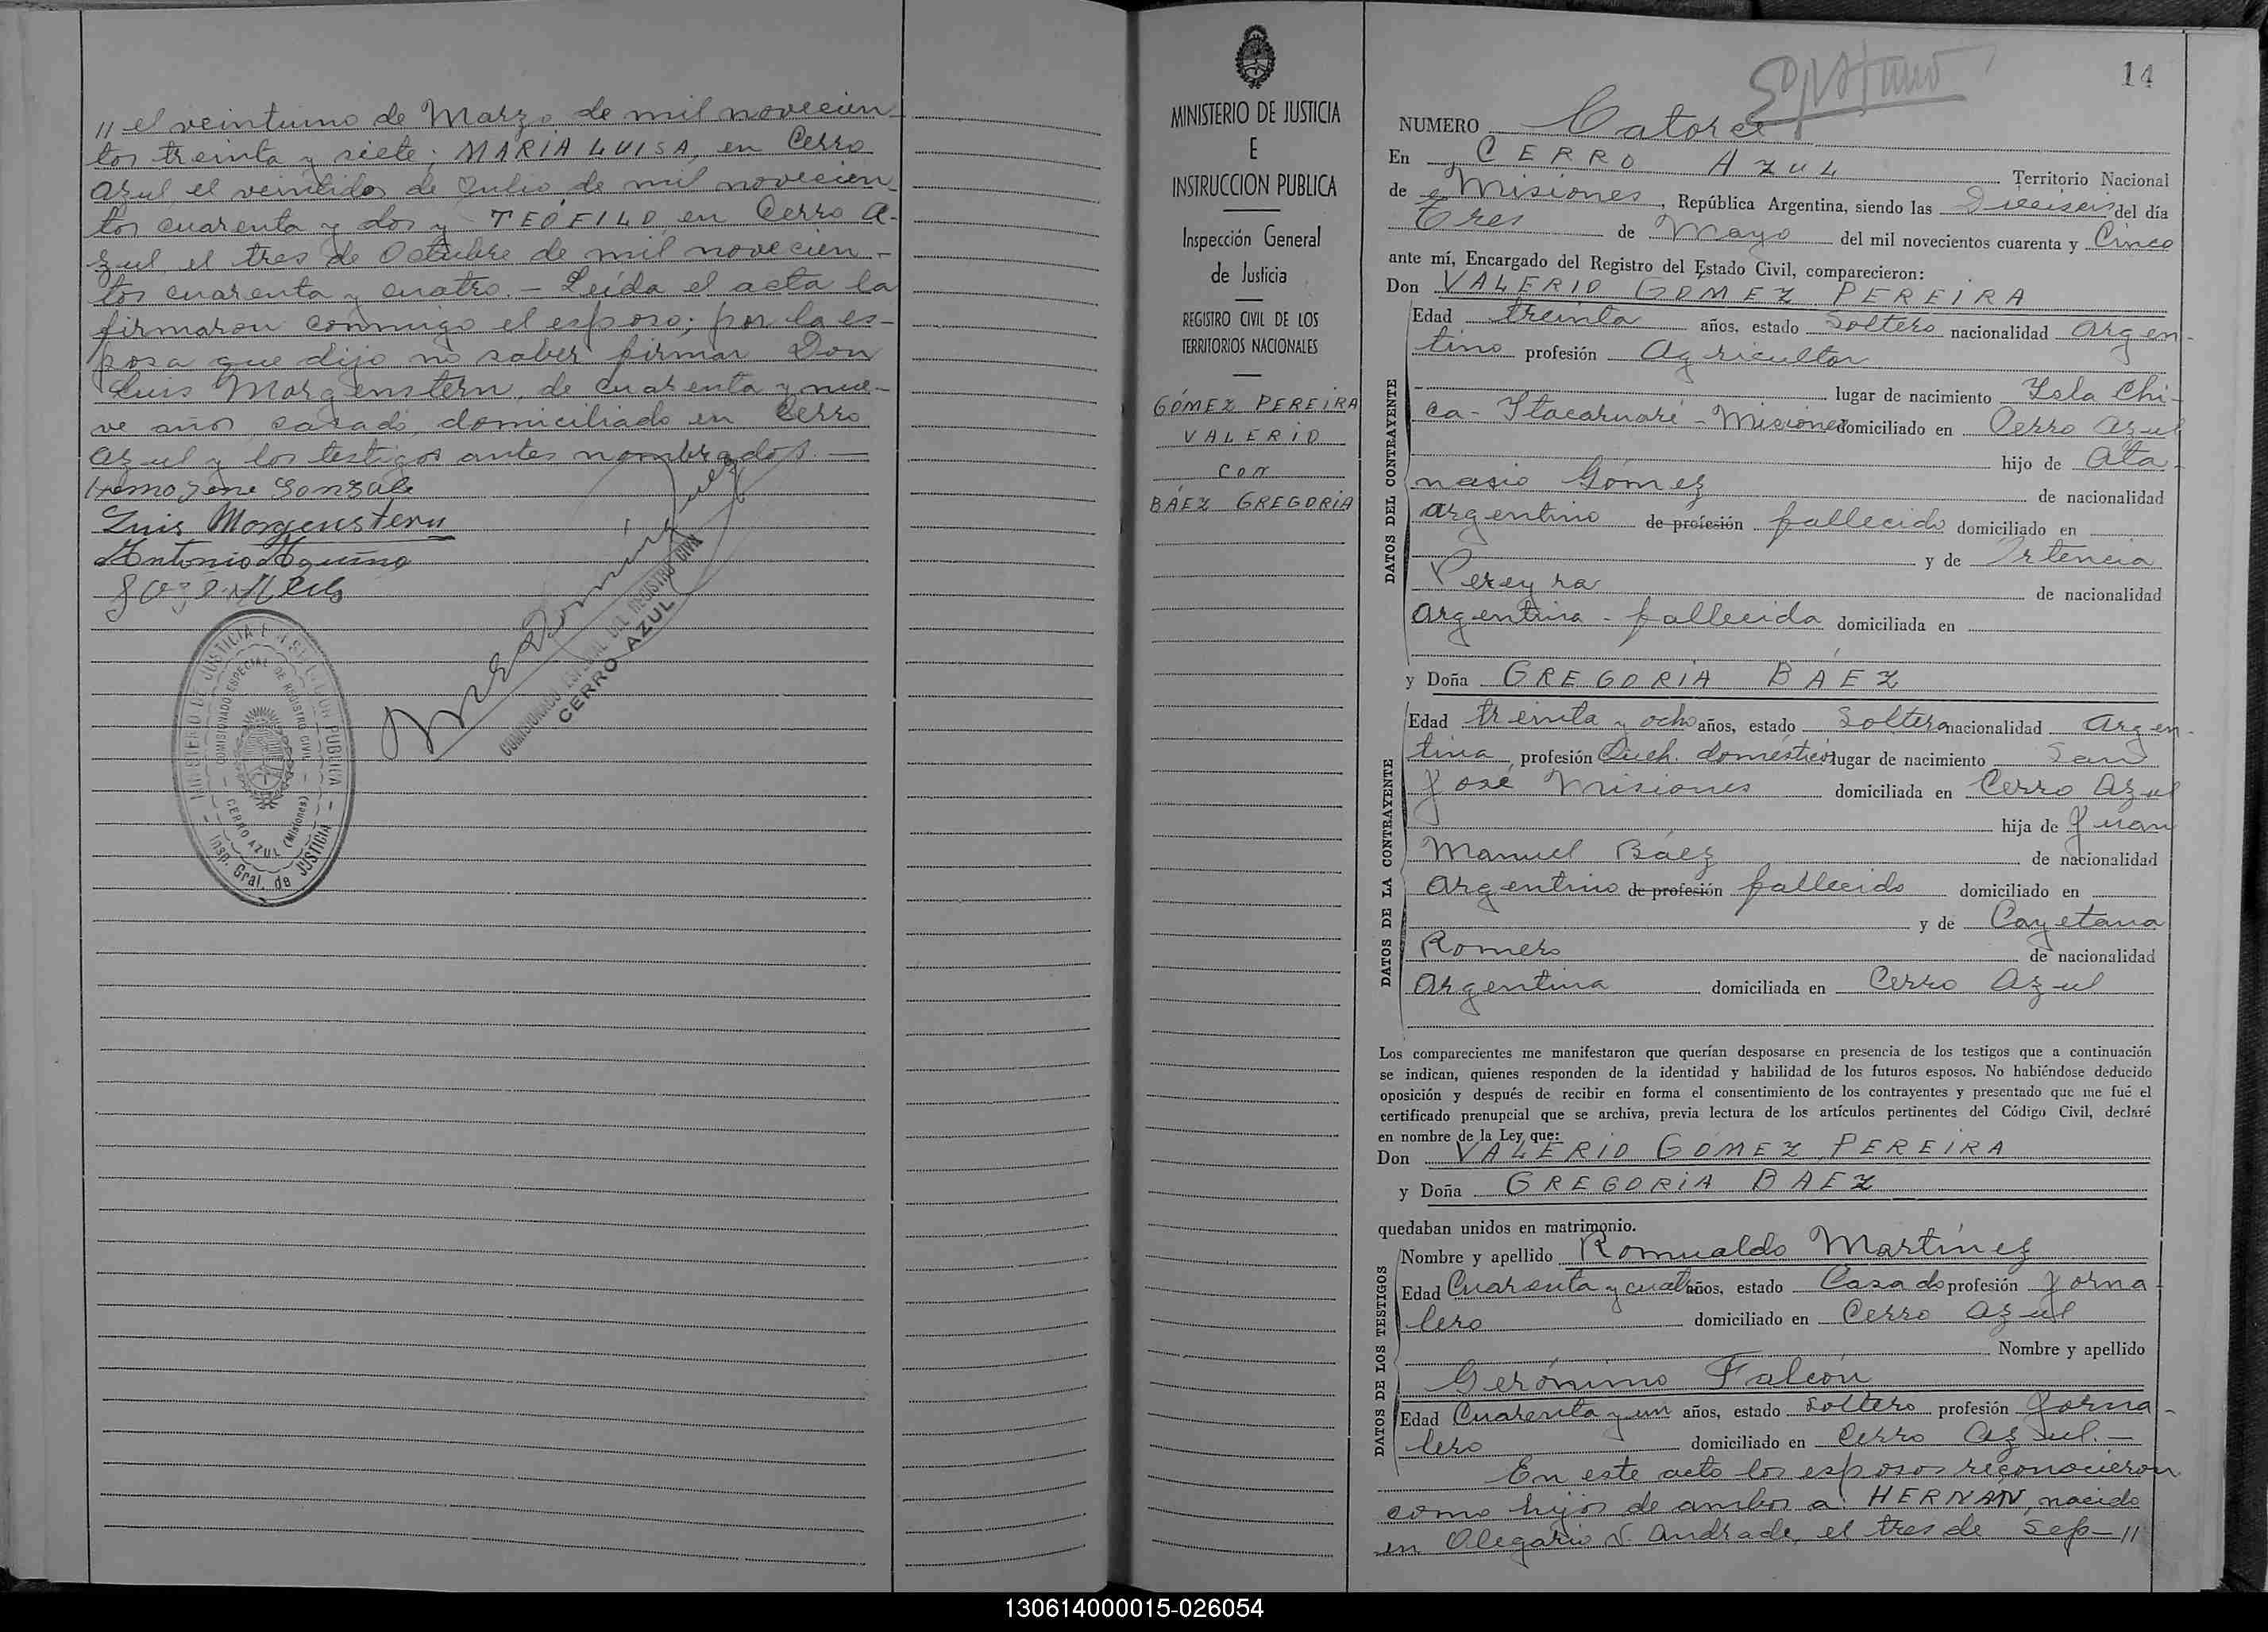 // el veintiuno de Marzo de mil novecien-
tos treinta y siete; MARIA LUISA, en Cerro
Azul el veintidos de Julio de mil novecien-
tos cuarenta y dos y TEÓFILO, en Cerro A-
zul el tres de Octubre de mil novecien-
tos cuarenta y cuatro.- Leída el acta la
firmaron conmigo el esposo; por la es-
posa que dijo no saber firmar Don
Luis Morgenstern, de cuarenta y nue-
ve años casado, domiciliado en Cerro
Azul y los testigos antes nombrados.—
Luis Morgenstern
Antonio Aquino
COMISIONADO ESPECIAL DEL REGISTRO CIVIL
CERRO AZUL
MINISTERIO DE JUSTICIA E INSTRUCCION PUBLICA
COMISIONADO ESPECIAL DE REGISTRO CIVIL
CERRO AZUL (Misiones)
Insp. Gral. de JUSTICIA
MINISTERIO DE JUSTICIA
E
INSTRUCCION PUBLICA
Inspección General
de Justicia
REGISTRO CIVIL DE LOS
TERRITORIOS NACIONALES
GÓMEZ PEREIRA
VALERIO
con
BÁEZ GREGORIA
14
NUMERO Catorce
En CERRO AZUL Territorio Nacional
de Misiones, República Argentina, siendo las Dieciseis del día
Tres de Mayo del mil novecientos cuarenta y Cinco
ante mí, Encargado del Registro del Estado Civil, comparecieron:
Don VALERIO GOMEZ PEREIRA
DATOS DEL CONTRAYENTE
Edad treinta años, estado Soltero nacionalidad Argen-
tino profesión Agricultor
lugar de nacimiento Isla Chi-
ca - Itacaruaré - Misiones domiciliado en Cerro Azul
hijo de Ata-
nasio Gómez de nacionalidad
argentino de profesión fallecido domiciliado en
y de Ortencia
Pereyra de nacionalidad
Argentina - fallecida domiciliada en
y Doña GREGORIA BÁEZ
DATOS DE LA CONTRAYENTE
Edad treinta y ocho años, estado Soltera nacionalidad Argen-
tina, profesión Queh. domésticos lugar de nacimiento San
José Misiones domiciliada en Cerro Azul
hija de Juan
Manuel Báez de nacionalidad
Argentino de profesión fallecido domiciliado en
y de Cayetana
Romero de nacionalidad
Argentina domiciliada en Cerro Azul
Los comparecientes me manifestaron que querían desposarse en presencia de los testigos que a continuación
se indican, quienes responden de la identidad y habilidad de los futuros esposos. No habiéndose deducido
oposición y después de recibir en forma el consentimiento de los contrayentes y presentado que me fué el
certificado prenupcial que se archiva, previa lectura de los artículos pertinentes del Código Civil, declaré
en nombre de la Ley que:
Don VALERIO GOMEZ PEREIRA
y Doña GREGORIA BAEZ
quedaban unidos en matrimonio.
DATOS DE LOS TESTIGOS
Nombre y apellido Romualdo Martínez
Edad Cuarenta y cuatro años, estado Casado profesión Jorna-
lero domiciliado en Cerro Azul
Nombre y apellido
Gerónimo Falcón
Edad Cuarenta y un años, estado soltero profesión Jorna-
lero domiciliado en Cerro Azul.—
En este acto los esposos reconocieron
como hijos de ambos a: HERNAN, nacido
en Olegario V. Andrade, el tres de Sep-//
130614000015-026054